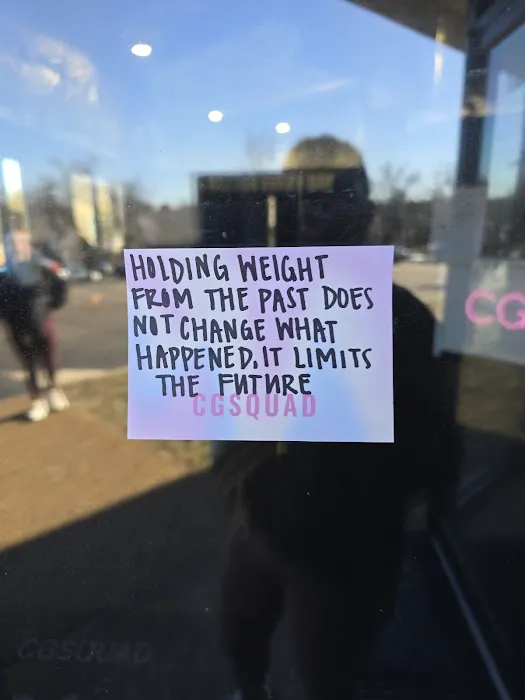 HOLDING WEIGHT
FROM THE PAST DOES
NOT CHANGE WHAT
HAPPENED, IT LIMITS
THE FUTURE
CGSQUAD
CG
CGSQUAD